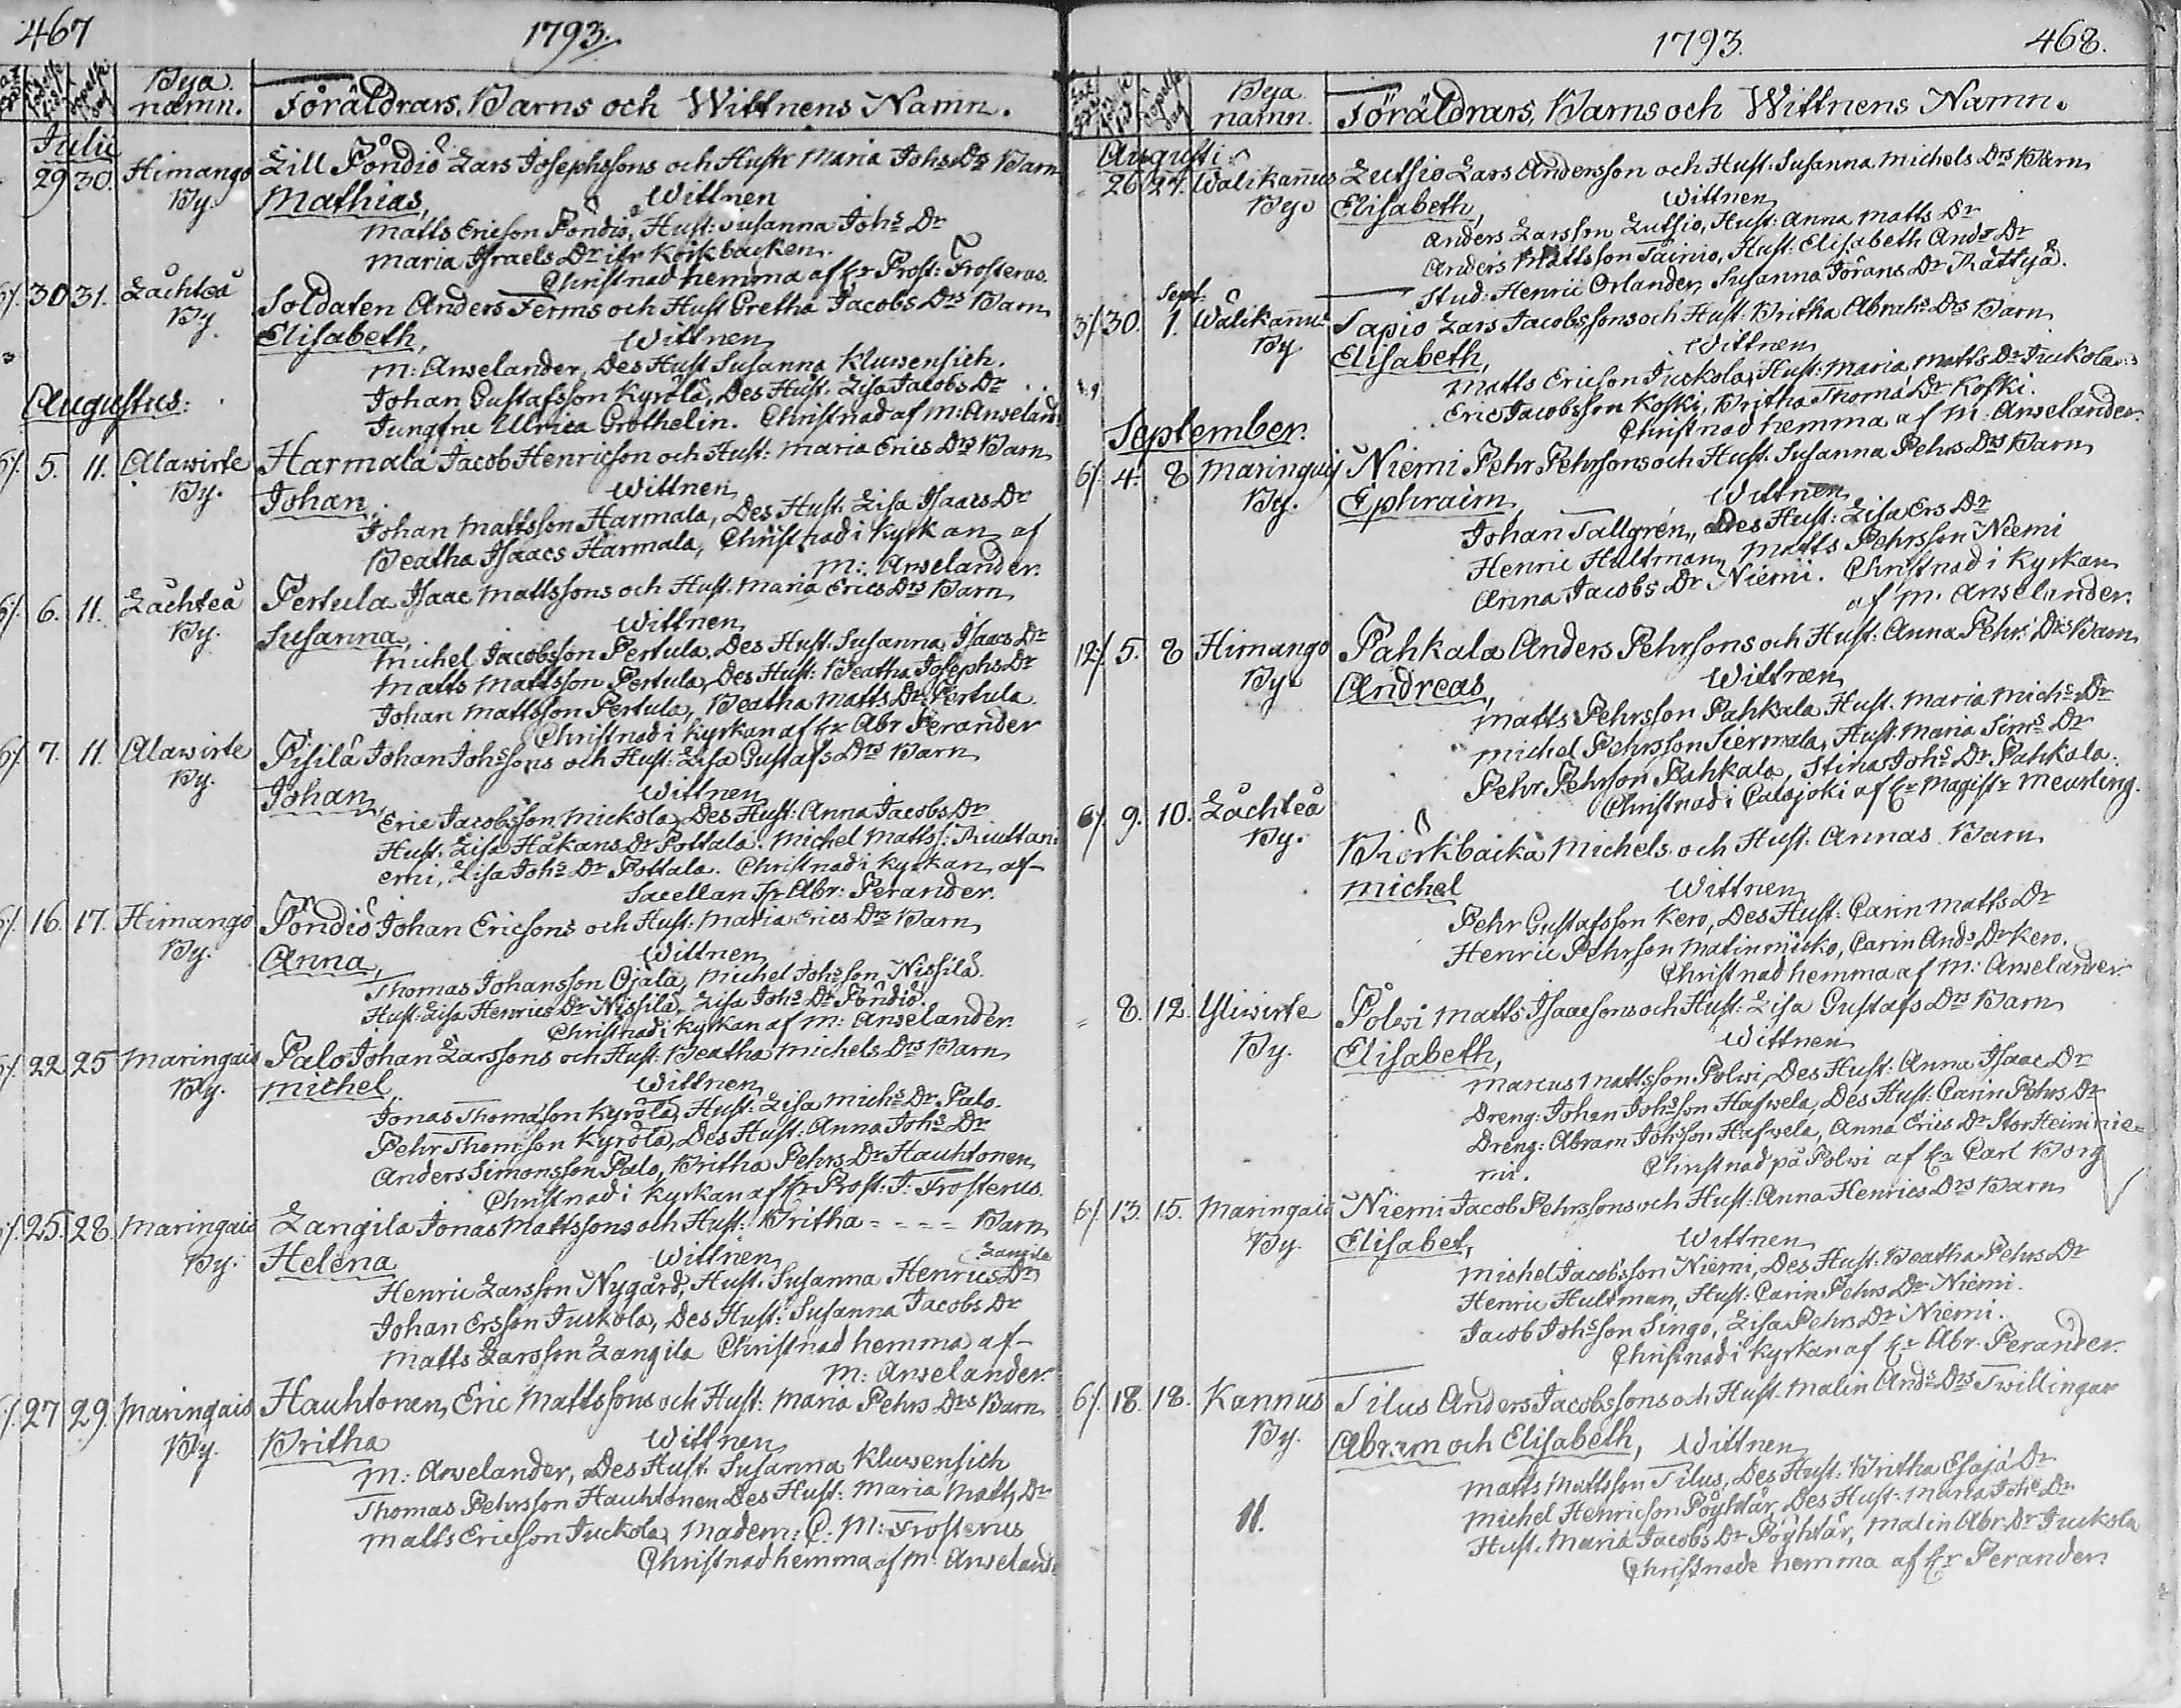 467
1793.
Bya namn.
Föräldrars, Barns och Wittnens Namn.
Julii
29 30. Himango By.
Lill Pöndiö Lars Josephssons och Hustr Maria Johs Drs Barn
Mathias, Wittnen
Matts Ericson Pöndiö, Hust: Susanna Johs Dr
Maria Israels Dr ifr Körkbacken.
Christnad hemma af Hr Prost: Frosterus.
30 31. Låchteå By
Soldaten Anders Ferms och Hust Gretha Jacobs Drs Barn
Elisabeth, Wittnen
M: Arwelander, Des Hust Susanna Kluwensich.
Johan Gustafsson Kyrölä, Des Hust: Lisa Jacobs Dr
Jungfru Ulrica Grothelin. Christnad af M: Arweland:
Augustus:
6/. 5. 11. Alawirte By.
Harmala Jacob Henricson och Hust: Maria Erics Drs Barn
Johan, Wittnen
Johan Mattsson Harmala, Des Hust. Lisa Isaacs Dr
Beatha Isaacs Harmala, Christnad i Kyrkan af
M: Arwelander.
6/. 6. 11. Låchteå By.
Pertula Isaac Mattssons och Hust. Maria Erics Drs Barn
Susanna, Wittnen
Michel Jacobsson Pertula, Des Hust: Susanna Isaacs Dr
Matts Mattsson Pertula, Des Hust: Beatha Josephs Dr
Johan Mattsson Pertula, Beatha Matts Dr Pertula
Christnad i Kyrkan af Hr Abr Perander
6/. 7. 11. Alawirte By.
Pisilä Johan Johssons och Hust: Lisa Gustafs Drs Barn
Johan, Wittnen
Eric Jacobsson Mickola, Des Hust: Anna Jacobs Dr
Hust: Lisa Håkans Dr Pottala. Michel Mattss:
emi, Lisa Johs Dr Pottala. Christnad i Kyrkan af
Sacellan Hr Abr: Perander.
6/. 16. 17. Himango By.
Pöndiö Johan Ericsons och Hust: Maria Erics Drs Barn
Anna, Wittnen
Thomas Johansson Ojala, Michel Johsson Nissilä.
Hust: Lisa Henrics Dr Nissilä, Lisa Johs Dr Pöndiö.
Christnad i Kyrkan af M: Arwelander.
6/. 22 25 Maringais By.
Palo Johan Larssons och Hust: Beatha Michels Drs Barn
Michel, Wittnen
Jonas Thomasson Kyrölä, Hust: Lisa Michs Dr Palo.
Pehr Thomsson Kyrölä, Des Hust: Anna Johs Dr
Anders Simonsson Palo, Britha Pehrs Dr Hauhtonen
Christnad i Kyrkan af Hr Prost: J: Frosterus.
25. 28. Maringais By.
Langila Jonas Mattssons och Hust: Britha = - - = Barn
Helena Wittnen
Langila
Henric Larsson Nygård, Hust: Susanna Henrics Dr
Johan Ersson Juckola, Des Hust: Susanna Jacobs Dr
Matts Larsson Langila Christnad hemma af
M: Arwelander.
27 29. Maringais By.
Hauhtonen, Eric Mattssons och Hust: Maria Pehrs Drs Barn
Britha Wittnen
M: Arwelander, Des Hust: Susanna Kluwensich
Thomas Pehrsson Hauhtonen Des Hust: Maria Matts Dr
Matts Ericsson Juckola, Madem: C: M: Frosterus
Christnad hemma af M: Arweland:
1793.
468.
Bya namn.
Föräldrars, Barns och Wittnens Namn.
Augusti
26 27. Walikannus By.
Lutsio Lars Andersson och Hust: Susanna Michels Drs Barn
Elisabeth, Wittnen
Anders Larsson Lutsio, Hust: Anna Matts Dr
Anders Mattsson Tainio, Hust: Elisabeth Ands Dr
Stud: Henric Orlander, Susanna Jörans Dr Rättyä.
Sept.
3/. 30. 1. Walikannus By.
Sapio Lars Jacobssons och Hust: Britha Abrahs Drs Barn
Elisabeth, Wittnen
Matts Ericson Juckola, Hust: Maria Matts Dr Juckola
Eric Jacobsson Koski, Britha Thoma Dr Koski.
Christnad hemma af M: Arwelander.
September.
6/. 4. 8 Maringais By.
Niemi Pehr Pehrssons och Hust. Susanna Pehrs Drs Barn
Ephraim, Wittnen
Johan Tallgrén, Des Hust: Lisa Ers Dr
Henric Hultman, Matts Pehrsson Niemi
Anna Jacobs Dr Niemi. Christnad i Kyrkan
af M. Arwelander.
12/. 5. 8 Himango By.
Pahkala Anders Pehrssons och Hust: Anna Pehrs Drs Barn
Andreas, Wittnen
Matts Pehrsson Pahkala Hust. Maria Michs Dr
Michel Pehrsson Siermala, Hust: Maria Sims Dr
Pehr Pehrsson Pahkala, Stina Johs Dr Pahkala.
Christnad i Calajoki af Hr Magistr Meurling.
6/. 9. 10. Låchteå By.
Biörkbacka Michels och Hust: Annas Barn
Michel Wittnen
Pehr Gustafsson Kero, Des Hust: Carin Matts Dr
Henric Pehrsson Matinmicko, Carin Ands Dr Kero.
Christnad hemma af M: Arwelander.
8. 12. Yliwirte By.
Polwi Matts Isaacsons och Hust: Lisa Gustafs Drs Barn
Elisabeth, Wittnen
Marcus Mattsson Polwi, Des Hust: Anna Isaac Dr
Dreng: Johan Johsson Haswela, Des Hust: Carin Pehrs Dr
Dreng: Abram Johsson Haswela, Anna Erics Dr Stor Heinnie=
mi. Christnad på Polwi af Hr Carl Borg
6/. 13. 15. Maringais By
Niemi Jacob Pehrssons och Hust: Anna Henrics Drs Barn
Elisabet, Wittnen
Michel Jacobsson Niemi, Des Hust: Beatha Pehrs Dr
Henric Hultman, Hust: Carin Pehrs Dr Niemi.
Jacob Johsson Singo, Lisa Pehrs Dr Niemi.
Christnad i Kyrkan af Hr Abr. Perander.
6/. 18. 18. Kannus By.
Tilus Anders Jacobssons och Hust. Malin Ands Drs Twillingar
Abram och Elisabeth, Wittnen
Matts Mattsson Tilus, Des Hust: Britha Esajæ Dr
Michel Henricson Pöyhtär, Des Hust: Maria Johs Dr
Hust. Maria Jacobs Dr Pöyhtär, Malin Abr: Dr Juckola
Christnade hemma af Hr Perander.
11.